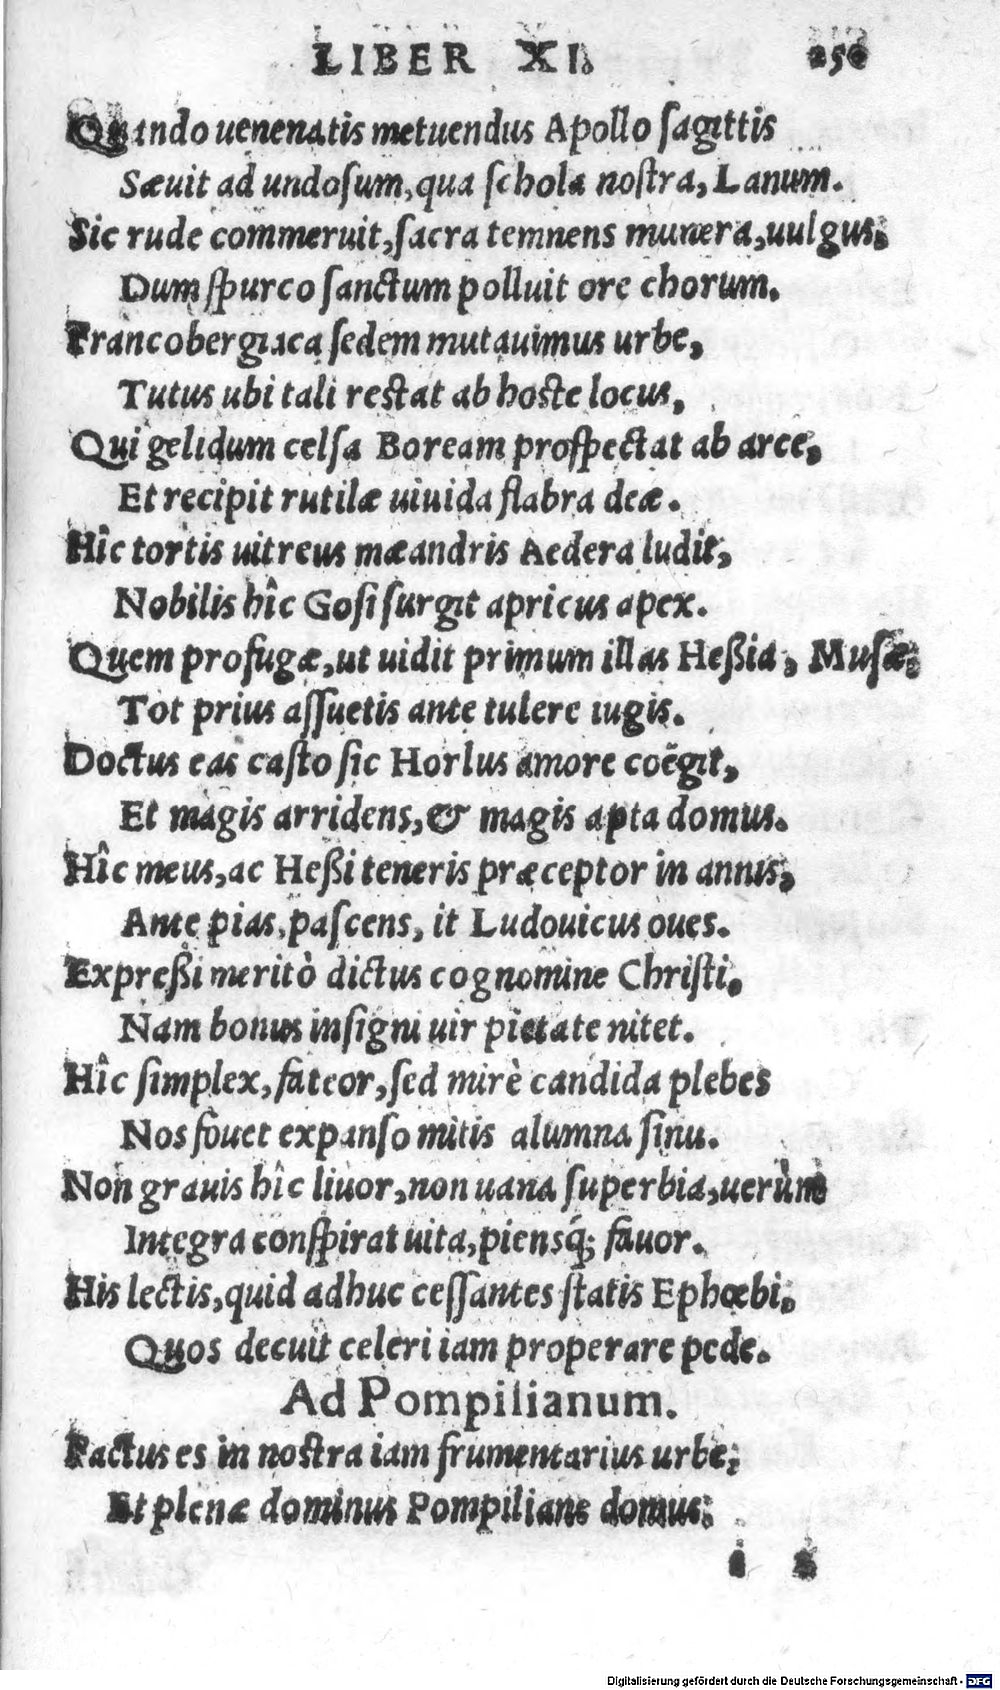 LIBER XI. 250
Quando uenenatis metuendus Apollo ſagittis
Sæuit ad undoſum, qua ſchola noſtra, Lanum.
Sic rude commeruit, ſacra temnens munera, uulgus,
Dum ſpurco ſanctum polluit ore chorum.
Francobergiaca ſedem mutauimus urbe,
Tutus ubi tali reſtat ab hoſte locus,
Qui gelidum celſa Boream proſpectat ab arce,
Et recipit rutilæ uiuida flabra deæ.
Hîc tortis uitreus mæandris Aedera ludit,
Nobilis hîc Goſi ſurgit apricus apex.
Quem profugæ, ut uidit primum illas Heßia, Muſæ,
Tot prius aſſuetis ante tulere iugis.
Doctus eas caſto ſic Horlus amore coëgit,
Et magis arridens, & magis apta domus.
Hîc meus, ac Heßi teneris præceptor in annis,
Ante pias, paſcens, it Ludouicus oues.
Expreßi meritò dictus cognomine Chriſti,
Nam bonus inſigni uir pietate nitet.
Hîc ſimplex, fateor, ſed mirè candida plebes
Nos fouet expanſo mitis alumna ſinu.
Non grauis hîc liuor, non uana ſuperbia, uerùm
Integra conſpirat uita, piensq́; fauor.
His lectis, quid adhuc ceſſantes ſtatis Ephœbi,
Quos decuit celeri iam properare pede.
Ad Pompilianum.
Factus es in noſtra iam frumentarius urbe,
Et plenæ dominus Pompiliane domus:
i 2
Digitalisierung gefördert durch die Deutsche Forschungsgemeinschaft - DFG